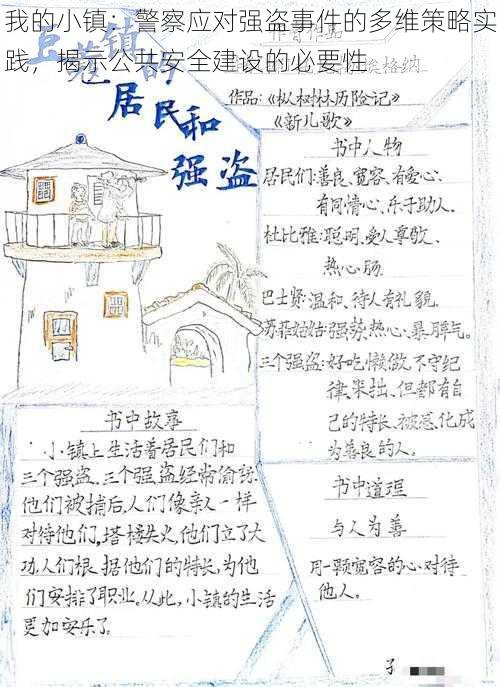 我的小镇：警察应对强盗事件的多维策略实
践，揭示公共安全建设的必要性
豆蔻镇的
居民和
强盗
埃格纳
作品:《枞树林历险记》
《新儿歌》
书中人物
居民们:善良、宽容、有爱心、
有同情心、乐于助人.
杜比雅:聪明、受人尊敬、
热心肠
巴士贤:温和、待人有礼貌.
苏菲姑姑:强势、热心、暴脾气.
三个强盗:好吃懒做、不守纪
律、笨拙、但都有自
己的特长、被感化成
为善良的人.
书中故事
小镇上生活着居民们和
三个强盗.三个强盗经常偷窃.
他们被捕后,人们像亲人一样
对待他们,塔楼失火,他们立了大
功.人们根据他们的特长,为他
们安排了职业.从此,小镇的生活
更加安乐了.
书中道理
与人为善
用一颗宽容的心对待
他人.